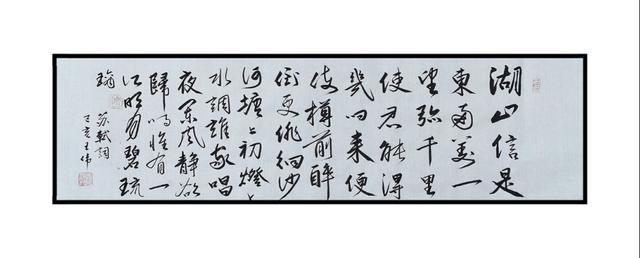 湖山信是
東南美一
望弥千里
使君能得
幾回来便
使樽前醉
倒更徘徊沙
河塘初燈
水調誰家唱
夜闌風静欲
歸時惟有一
江明月碧琉
璃
蘇軾詞
丁亥王伟